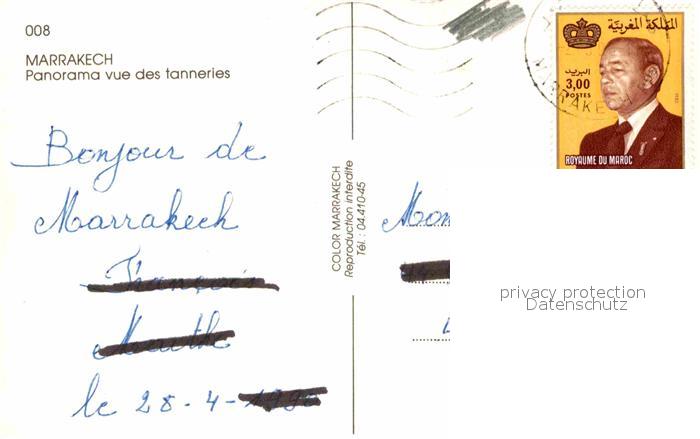 008
MARRAKECH
Panorama vue des tanneries
Bonjour de
Marrakech
le 28-4-
COLOR MARRAKECH
Reproduction interdite
Tél.: 04.410-45
المملكة المغربية
البريد
3,00
POSTES
ROYAUME DU MAROC
MARRAKE
Mon
privacy protection
Datenschutz